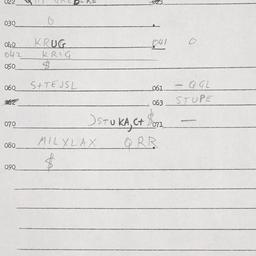 022
030 0
040 KRUG 041 0
042 KRIG
050 $
060 S+TEJSL 061 — QGL
062 063 STUPE
070 )STUKA,C+$ 071 —
080 MILXLAX QRR
090 $